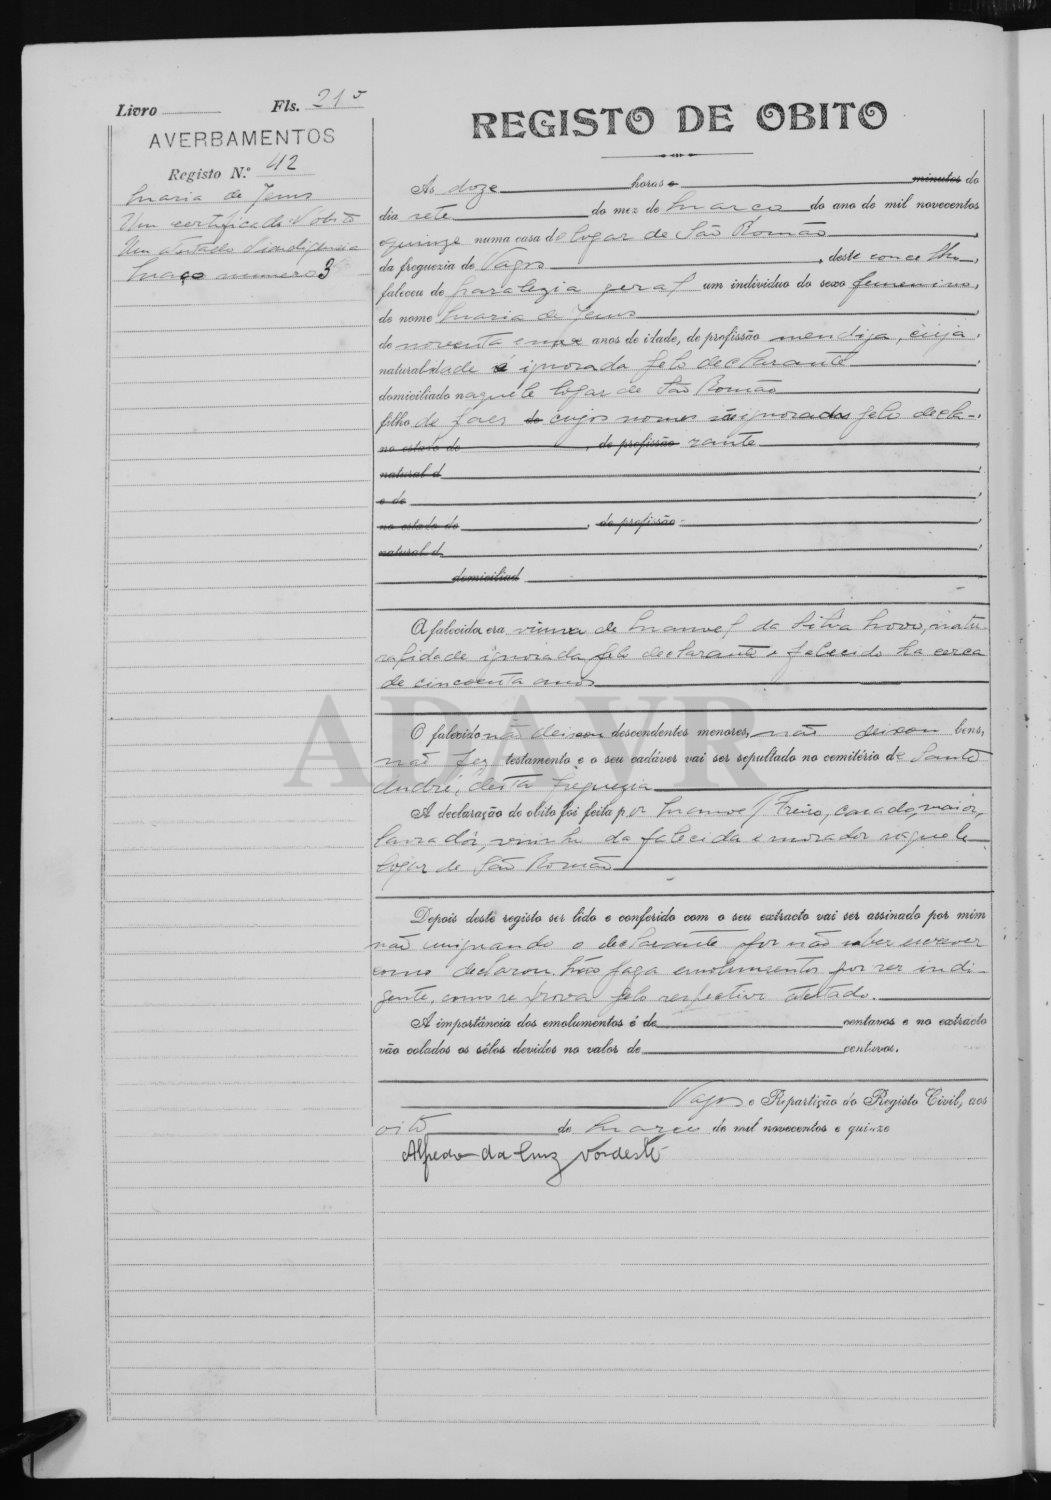 Livro Fls. 21 v
AVERBAMENTOS
Registo N.º 42
Maria de Jesus
Um certificado d'obito
Um atestado d'indigencia
Maço numero 3
REGISTO DE OBITO
Ás doze horas e minutos do
dia sete do mez de Março do ano de mil novecentos
quinze numa casa do logar de São Romão
da freguezia de Vagos, deste concelho,
faleceu de paralezia geral um individuo do sexo femenino,
de nome Maria de Jesus
de noventa anos de idade, de profissão mendiga, cuja
naturalidade é ignorada pelo declarante
domiciliado naquele logar de São Romão
filho de paes de cujos nomes são ignorados pelo decla-
no estado de , de profissão rante
natural d
e de
no estado de , de profissão
natural d
domiciliad
A falecida era viuva de Manuel da Silva Novo, natu-
ralidade ignorada pelo declarante e falecido ha cerca
de cincoenta anos
O falecido não deixou descendentes menores, não deixou bens,
não fez testamento e o seu cadáver vai ser sepultado no cemitério de Santo
André, desta freguezia
A declaração do obito foi feita por Manuel Freire, casado, maior,
lavrador, vizinho da falecida e morador naquele
logar de São Romão
Depois deste registo ser lido e conferido com o seu extracto vai ser assinado por mim
não assignando o declarante por não saber escrever
como declarou. Não paga emolumentos por ser indi-
gente, como se prova pelo respectivo atestado.
A importância dos emolumentos é de centavos e no extracto
vão colados os sêlos devidos no valor de centavos.
Vagos e Repartição do Registo Civil, aos
oito de Março de mil novecentos e quinze
Alfredo da Luz Nordeste
ADAVR